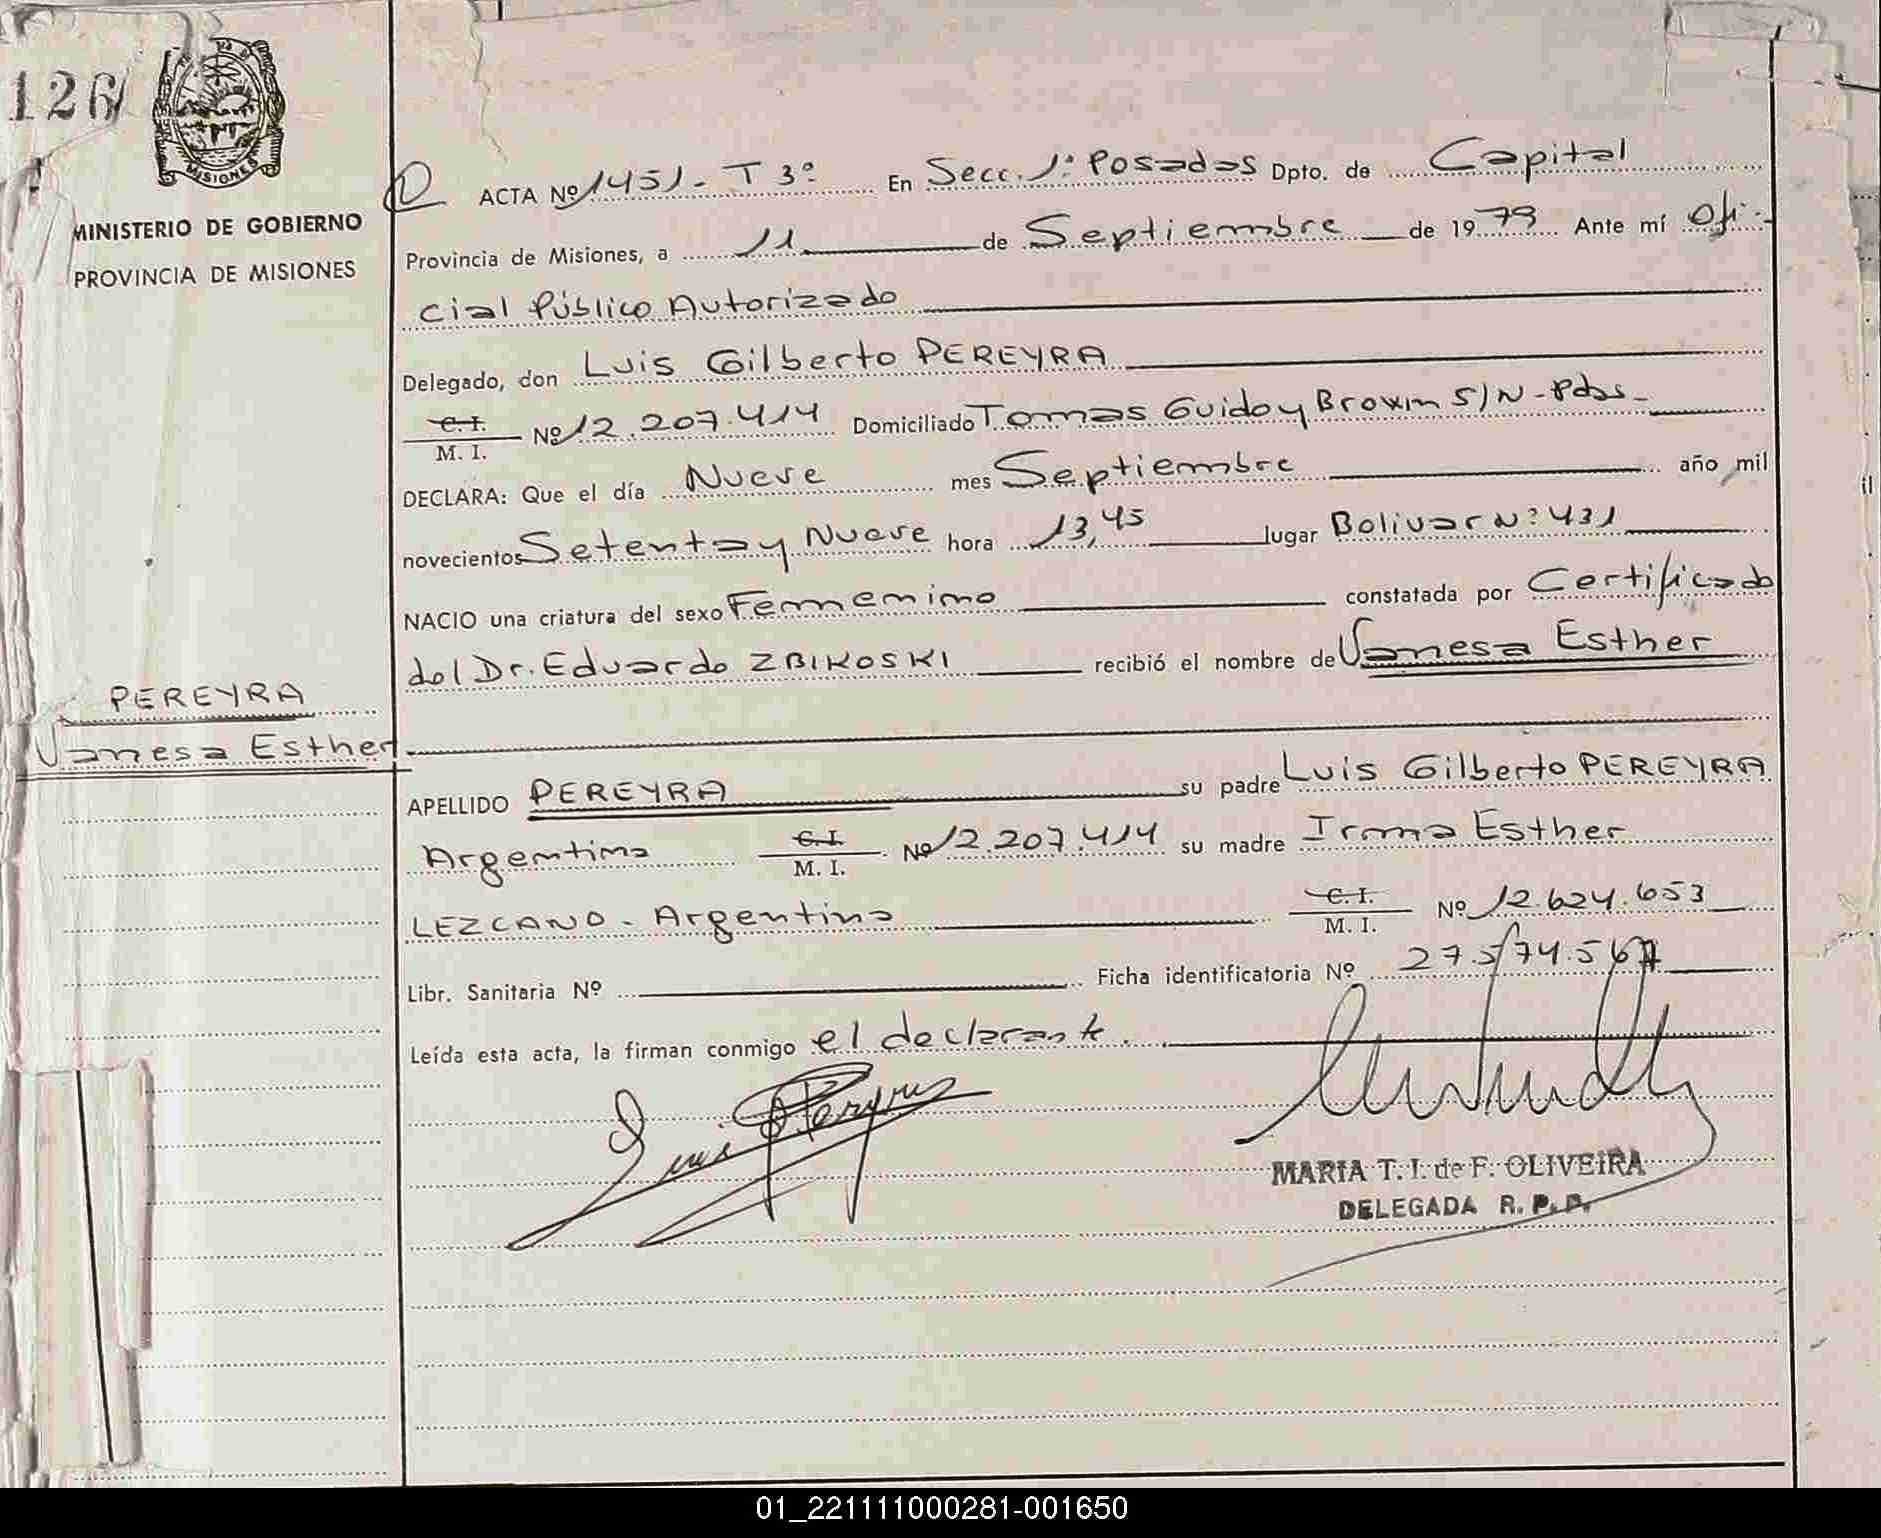 126
MISIONES
MINISTERIO DE GOBIERNO
PROVINCIA DE MISIONES
ACTA Nº 1451 - T 3º En Secc. 1º Posadas Dpto. de Capital
Provincia de Misiones, a 11 de Septiembre de 1979 Ante mí Ofi-
cial Público Autorizado
Delegado, don Luis Gilberto PEREYRA
C.I.
M. I. Nº 12.207.414 Domiciliado Tomas Guido y Brown S/N - Pdas -
DECLARA: Que el día Nueve mes Septiembre año mil
novecientos Setenta y Nueve hora 13,45 lugar Bolivar Nº 431
NACIO una criatura del sexo Femenino constatada por Certificado
del Dr. Eduardo ZBIKOSKI recibió el nombre de Vanesa Esther
PEREYRA
Vanesa Esther
APELLIDO PEREYRA su padre Luis Gilberto PEREYRA
Argentino C.I.
M. I. Nº 12.207.414 su madre Irma Esther
LEZCANO - Argentina C.I.
M. I. Nº 12.624.653
Libr. Sanitaria Nº Ficha identificatoria Nº 27.574.567
Leída esta acta, la firman conmigo el declarante.
Luis Pereyra
MARIA T. I. de F. OLIVEIRA
DELEGADA R. P. P.
01_221111000281-001650